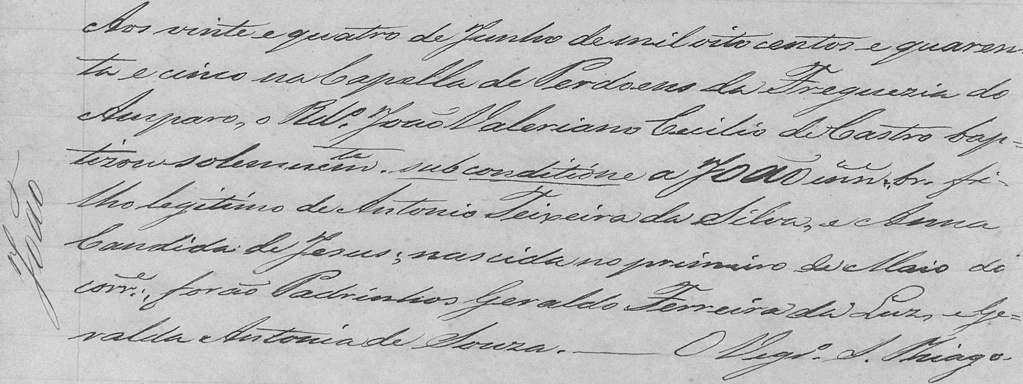 João
Aos vinte e quatro de Junho de mil oito centos e quaren-
ta e cinco na Capella de Perdoens da Freguezia do
Amparo, o Rd.º João Valeriano Cecilio de Castro bap-
tizou solemnem.te sub conditióne a João inn.te br. fi-
lho legitimo de Antonio Teixeira da Silva, e Anna
Candida de Jesus; nascida no primeiro de Maio do
corr.e; forão Padrinhos Geraldo Ferreira da Luz, e Ge-
valda Antonia de Souza. — O Vigr.º S. Thiago